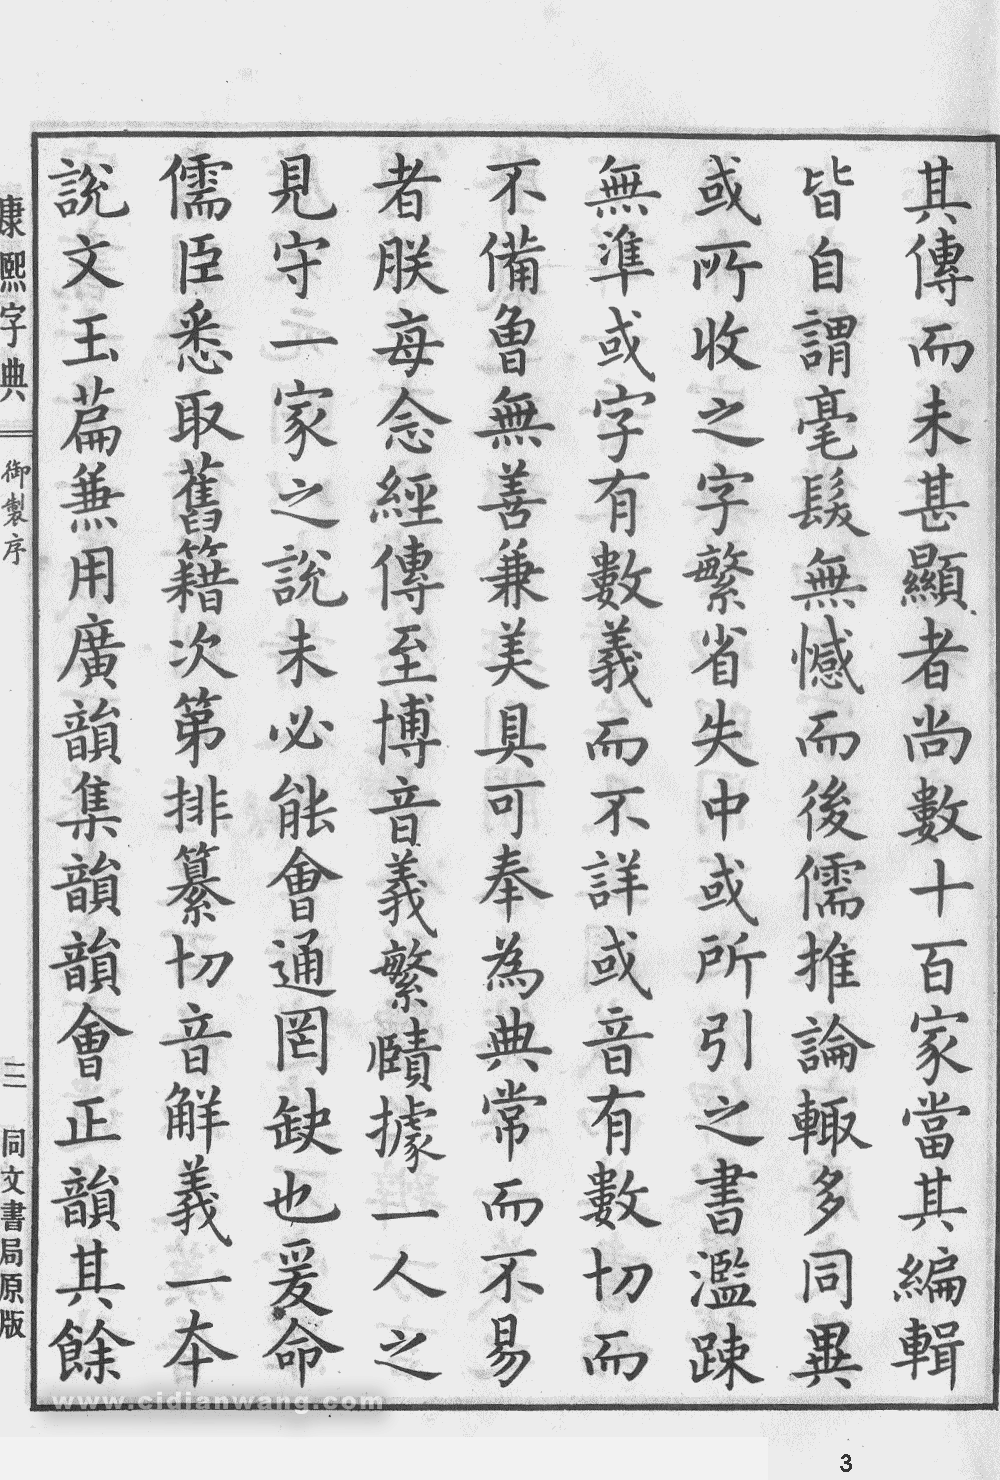 其傳而未甚顯者尚數十百家當其編輯
皆自謂毫髮無憾而後儒推論輒多同異
或所收之字繁省失中或所引之書濫疎
無準或字有數義而不詳或音有數切而
不備曾無善兼美具可奉為典常而不易
者朕每念經傳至博音義繁賾據一人之
見守一家之說未必能會通罔缺也爰命
儒臣悉取舊籍次第排纂切音解義一本
說文玉篇兼用廣韻集韻韻會正韻其餘
康熙字典
御製序
三
同文書局原版
www.cidianwang.com
3